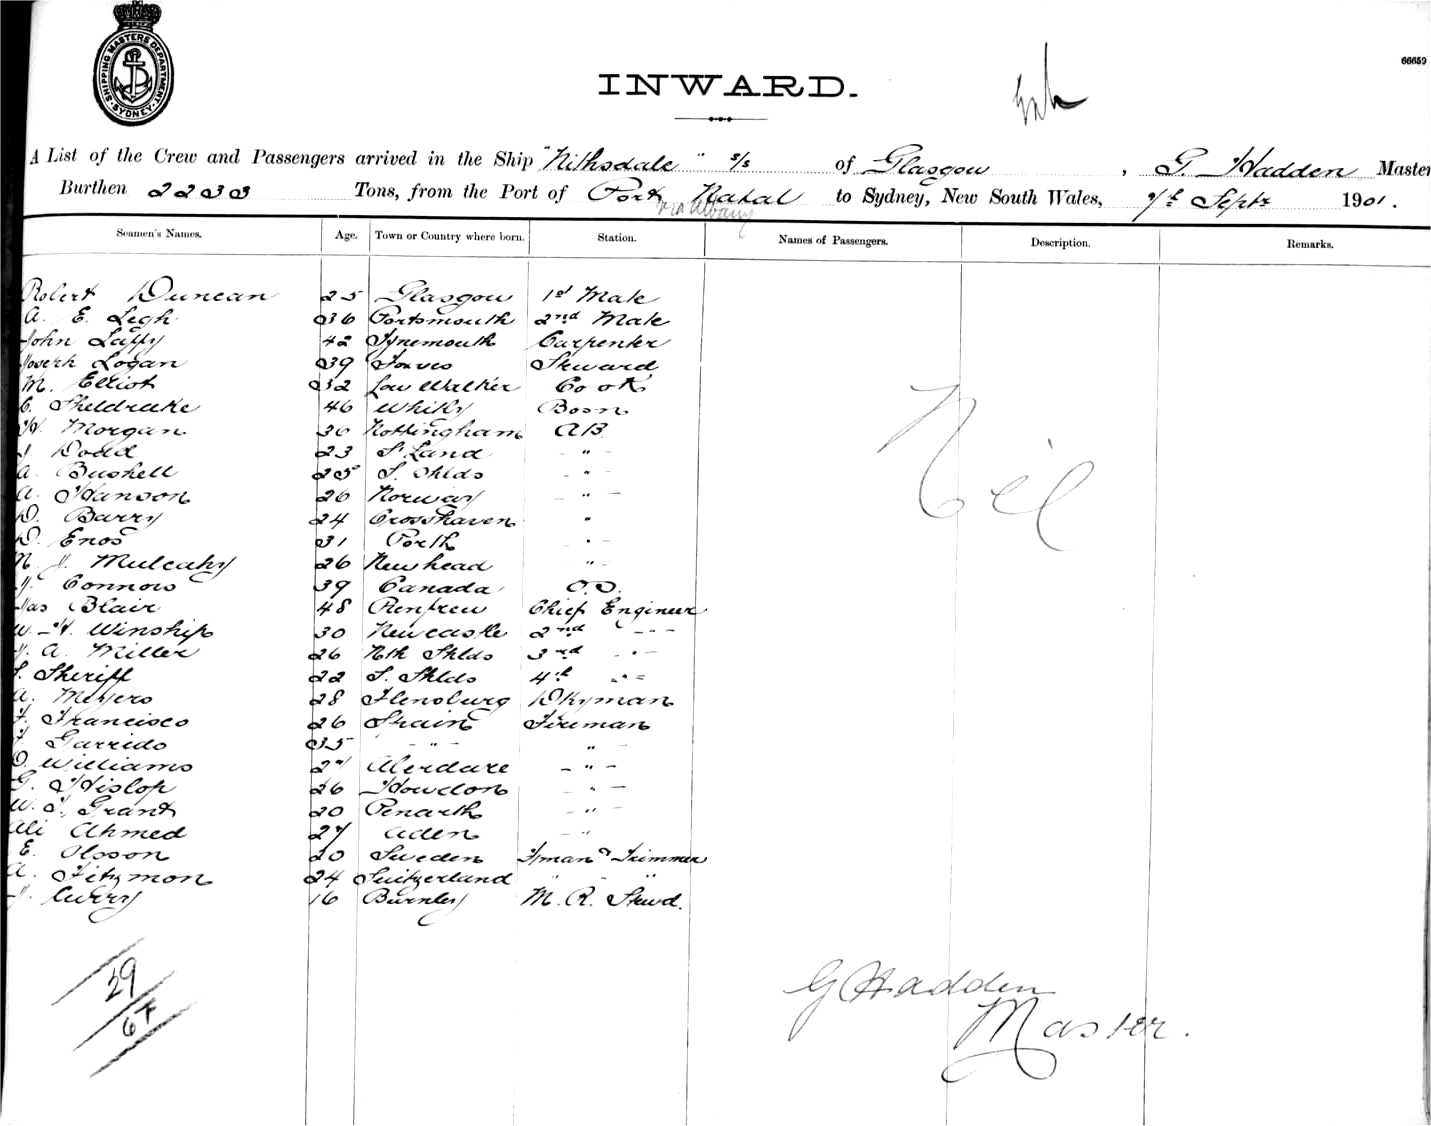 SHIPPING MASTERS DEPARTMENT SYDNEY
66659
INWARD.
A List of the Crew and Passengers arrived in the Ship "Nithsdale" s/s of Glasgow, G. Hadden Master
Burthen 2233 Tons, from the Port of Port Natal to Sydney, New South Wales, Septr 1901.
via Albany
Seamen's Names. Age. Town or Country where born. Station. Names of Passengers. Description. Remarks.
Robert Duncan 25 Glasgow 1st Mate
A. E. Legh 36 Portsmouth 2nd Mate
John Laffy 42 Tynemouth Carpenter
Joseph Logan 39 Steward
M. Elliot 32 Low Walker Cook
C. Sheldrake 46 Whitby Bosn
W. Morgan 30 Nottingham AB
Dodd 23 S. Land "
A. Bushell 25 S. Shlds "
A. Hanson 26 Norway "
D. Barry 24 Crosshaven "
D. Enos 31 Porth "
Mulcahy 26 Newhead "
J. Connors 39 Canada O.S.
Jas Blair 48 Renfrew Chief Engineer
W. H. Winship 30 Newcastle 2nd "
J. A. Miller 26 Nth Shlds 3rd "
S. Sheriff 22 S. Shlds 4th "
A. Meyers 28 Flensburg Dkyman
F. Francisco 26 Spain Fireman
Garrido 35 " "
D. Williams 27 Aberdare "
G. Hislop 26 Howdon "
W. J. Grant 20 Penarth "
Ali Ahmed 27 Aden "
E. Olsson 20 Sweden Fman & Trimmer
A. Fitzmon 24 Switzerland " "
J. Curry 16 Burnley M. R. Stewd.
Nil
29
67
G Hadden
Master.